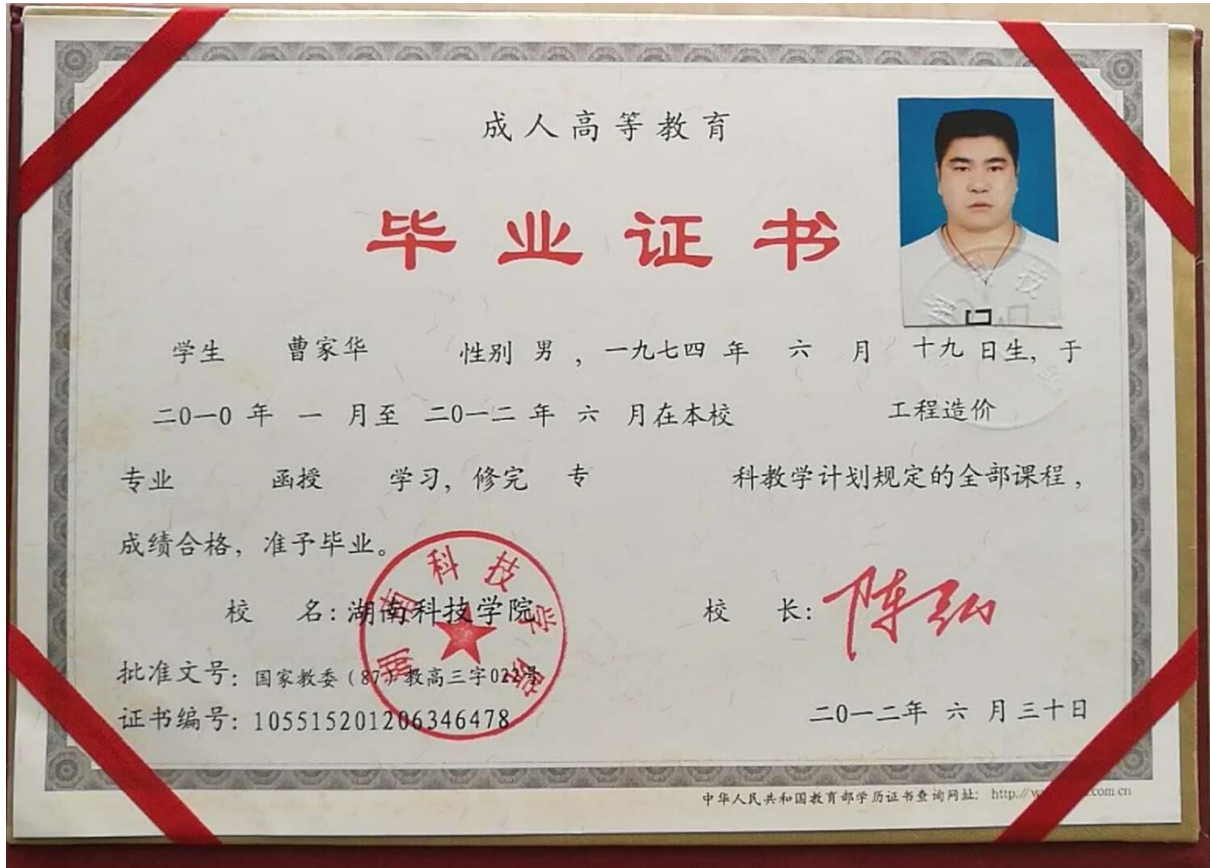 成人高等教育
毕业证书
学生 曹家华 性别 男 , 一九七四 年 六 月 十九 日生, 于
二0一0 年 一 月至 二0一二 年 六 月在本校 工程造价
专业 函授 学习, 修完 专 科教学计划规定的全部课程,
成绩合格, 准予毕业。
校 名: 湖南科技学院 校 长: 陈弘
湖南科技学院
批准文号: 国家教委 (87) 教高三字022号
证书编号: 105515201206346478
二0一二年 六 月 三十日
中华人民共和国教育部学历证书查询网址: http://w com.cn